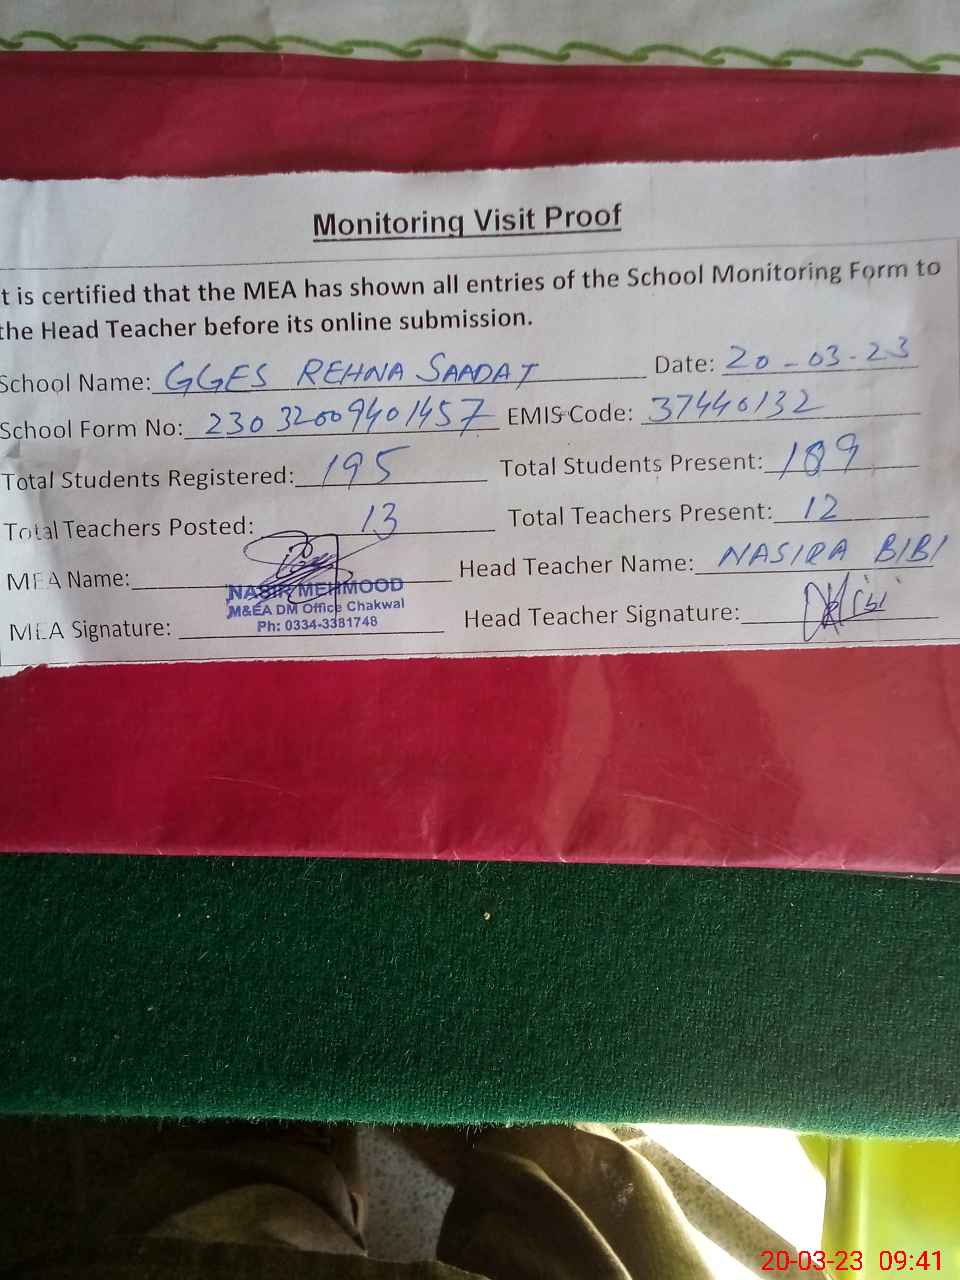 Monitoring Visit Proof
t is certified that the MEA has shown all entries of the School Monitoring Form to
the Head Teacher before its online submission.
School Name: GGES REHNA SAADAT Date: 20-03-23
School Form No: 23032009401457 EMIS Code: 37440132
Total Students Registered: 195 Total Students Present: 189
Total Teachers Posted: 13 Total Teachers Present: 12
MEA Name: Head Teacher Name: NASIRA BIBI
NASIR MEHMOOD
M&EA DM Office Chakwal
Ph: 0334-3381748
MEA Signature: Head Teacher Signature:
20-03-23 09:41